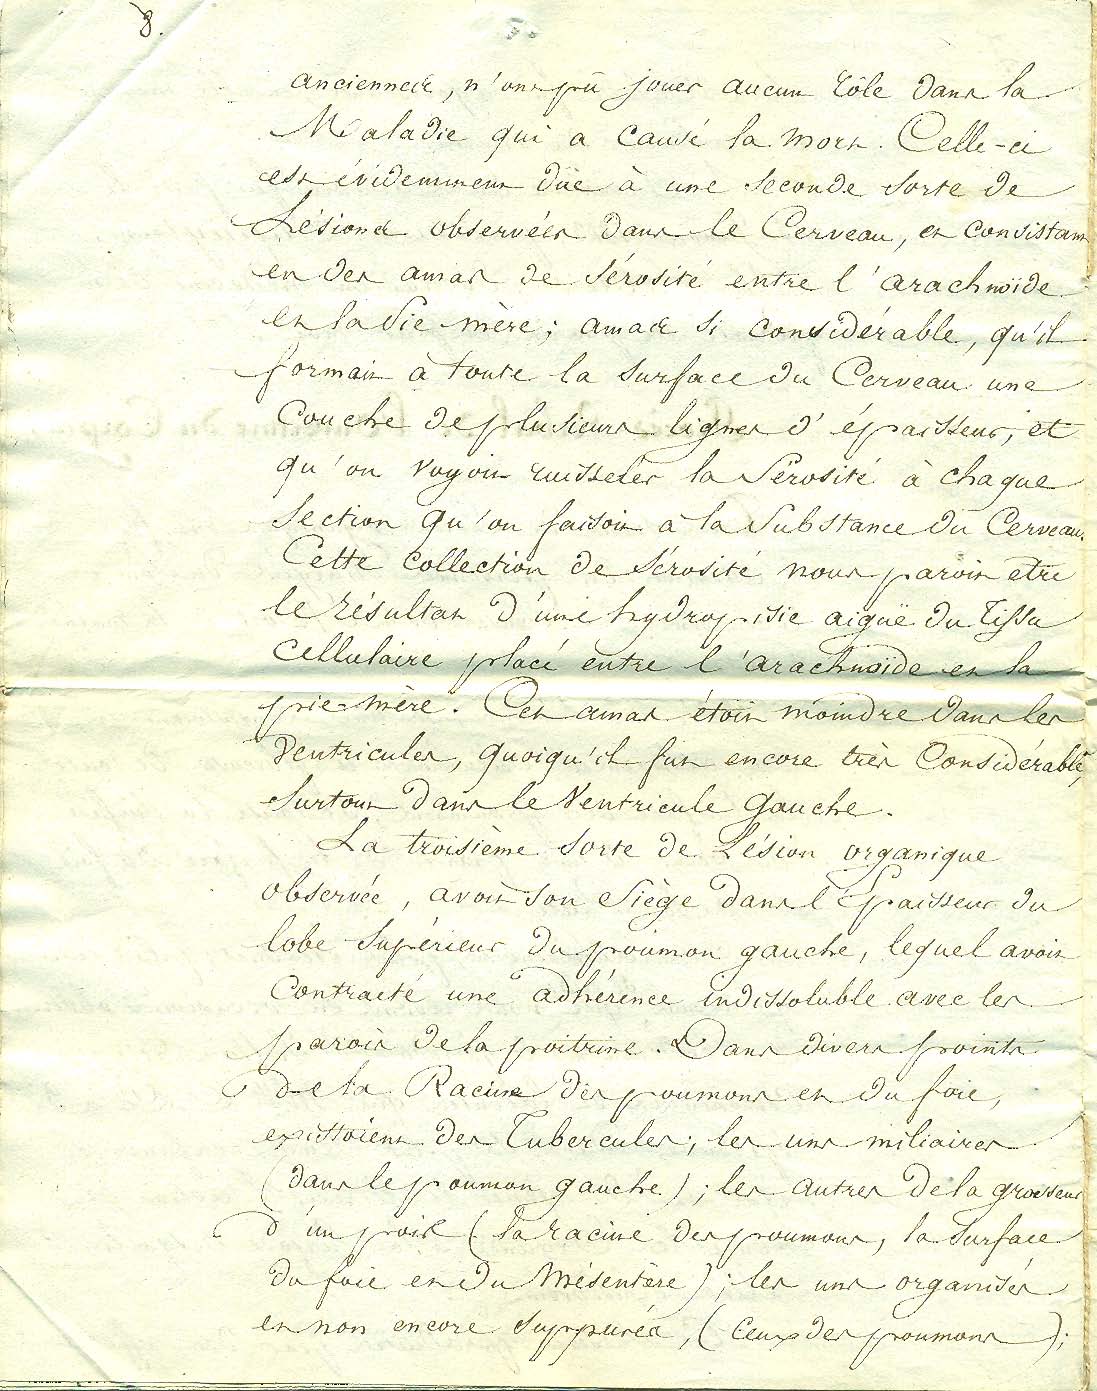 8.
anciennes, n'ont pû jouer aucun rôle dans la
Maladie qui a causé la mort. Celle-ci
est évidemment düe à une seconde sorte de
Lésions observées dans le Cerveau, et consistant
en des amas de sérosité entre l'arachnoïde
et la Pie-mère; amas si considérable, qu'il
formait à toute la surface du Cerveau une
Couche de plusieurs lignes d'épaisseur, et
qu'on voyoit ruisseler la Sérosité à chaque
Section qu'on faisoit à la Substance du Cerveau.
Cette collection de Sérosité nous paroit etre
le résultat d'une hydropisie aiguë du Tissu
Cellulaire placé entre l'arachnoïde et la
pie-mère. Cet amas étoit moindre dans les
Ventricules, quoiqu'il fut encore très Considérable,
Surtout dans le Ventricule gauche.
La troisième sorte de Lésion organique
observée, avoit son Siège dans l'Epaisseur du
lobe Supérieur du poumon gauche, lequel avoit
Contracté une adhérence indissoluble avec les
parois de la poitrine. Dans divers points
de la Racine des poumons et du foie,
existoient des Tubercules; les uns miliaires
(dans le poumon gauche); les autres de la grosseur
d'un pois (la racine des poumons, la Surface
du foie et du Mésentère); les uns organisés
et non encore Suppurés, (Ceux des poumons);